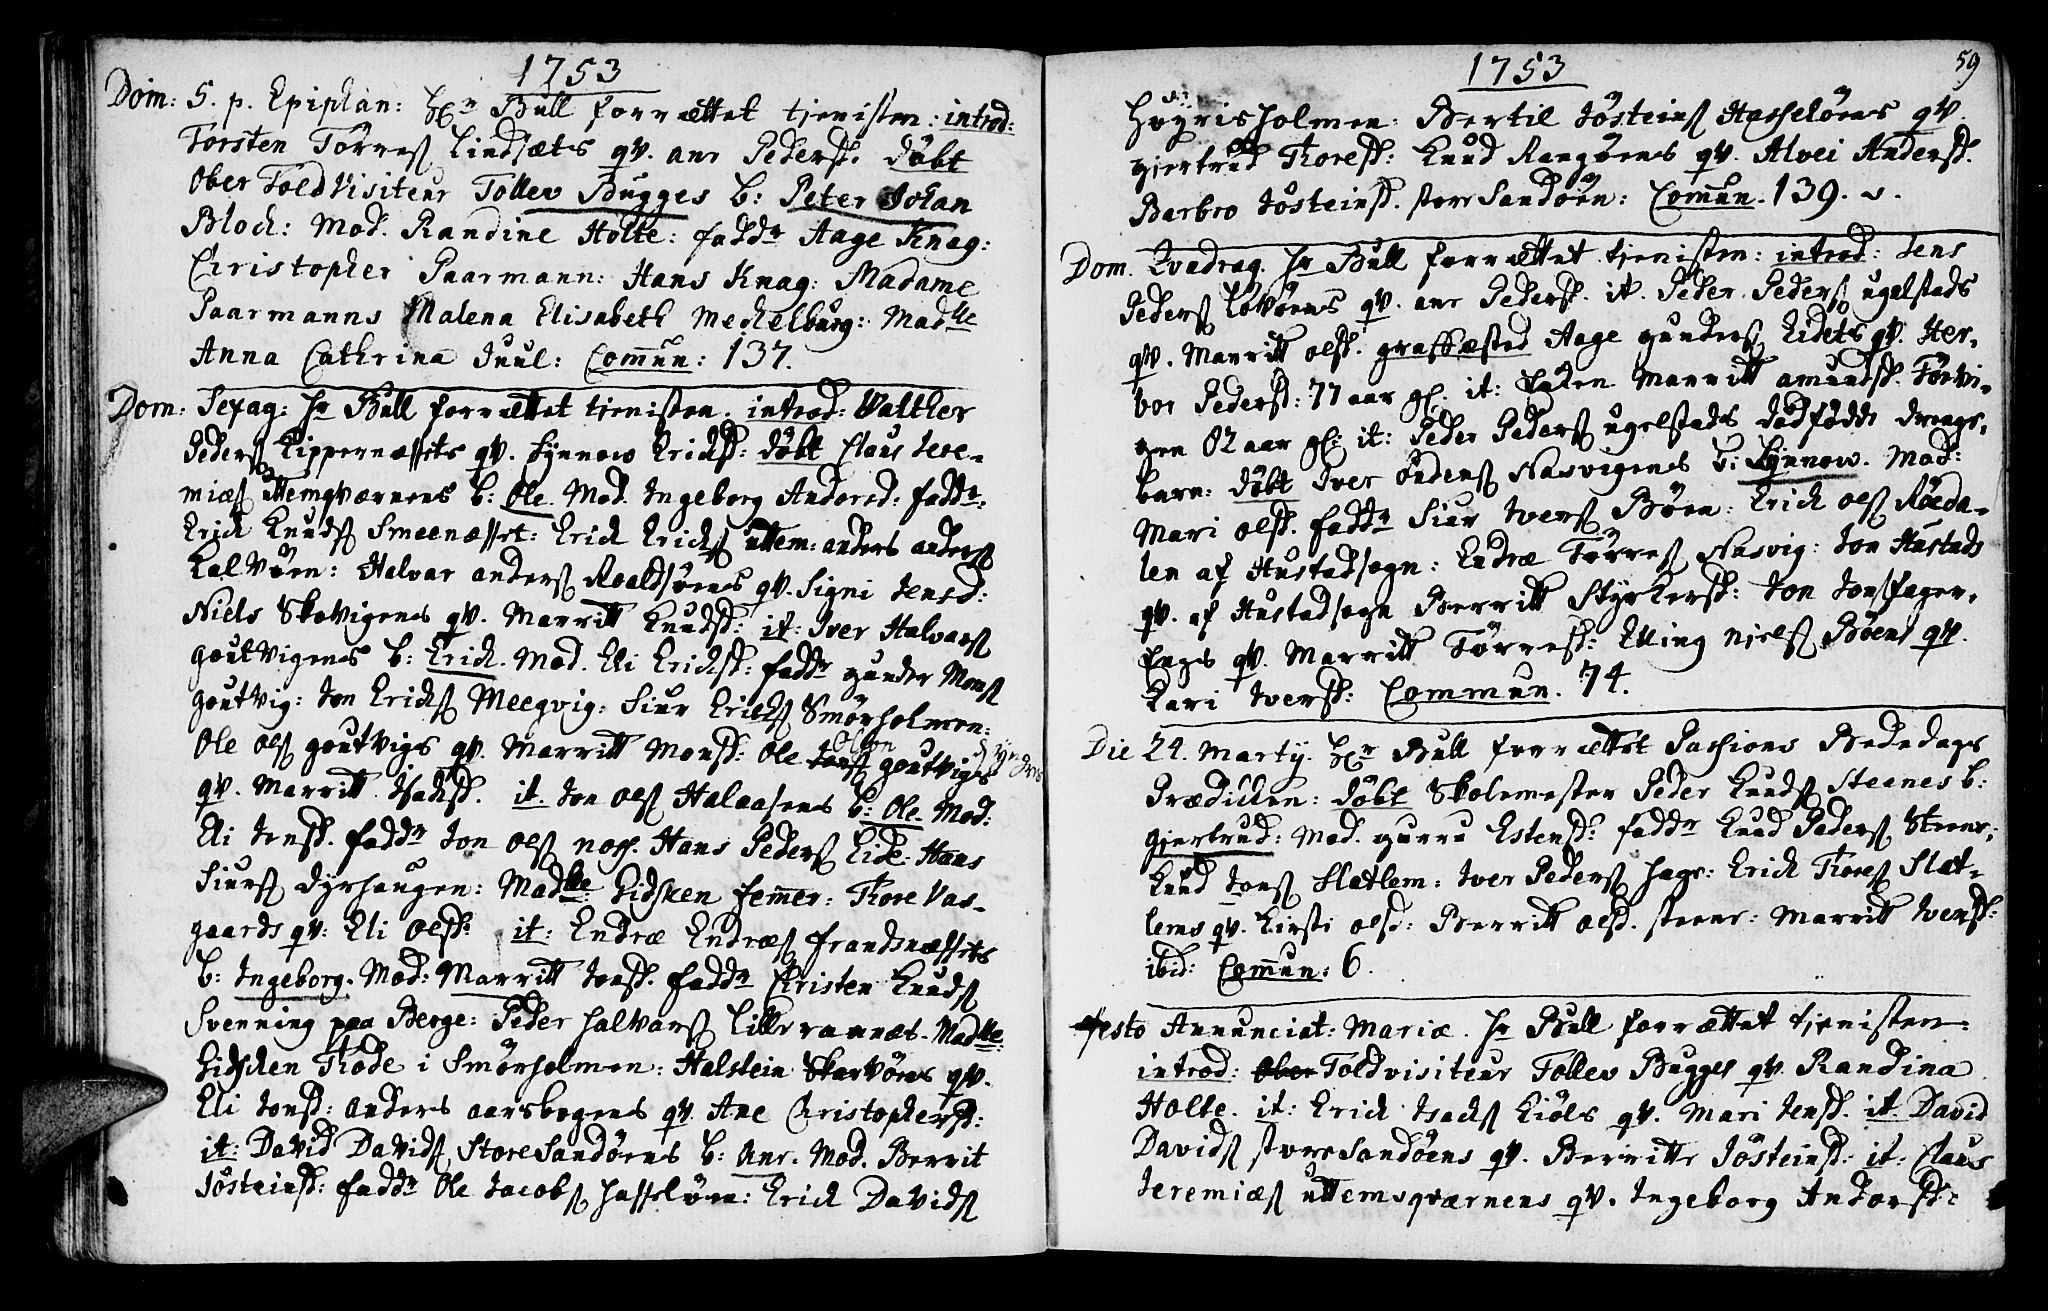 1753
Dom: 5. p. Epiphan: Hr Bull forrættet tjenisten: introd:
Torsten Törres Lindsæts qv. ane Peders. döbt
Ober Told Visiteur Tollev Bugges b: Peter Johan
Bloch: Mod. Randine Holte: fadd Aage Knag:
Christopher Paarmann: Hans Knag: Madame
Paarmanns Malena Elisabeth Meckelburg: Madlle
Anna Cathrina Juul: Commun: 137.
Dom: Sexag: Hr Bull forrættet tjenisten. introd: Walther
Peders Kippernæssets qv. Synnow Ericks: döbt Claus Jere-
mias uttemqværnens b: Ole. Mod. Ingeborg Andersd: fadd.
Erich Knuds Smeenæsset: Erich Erichs uttem: anders anders
Kalvöen: Halvar anders Roaldsöens qv. Signi Jensd:
Niels Skovigens qv. Marritt Knudsd: it: Iver Halvars
goutvigens b: Erich. Mod. Eli Ericksd: fadd gunder Mons
goutvig: Jon Ericks Meegvig: Siur Ericks Smörholmen:
Ole ols goutvigs qv. Marritt Monsd: Ole Jons Olsen goutvigs d. yngres
qv. Marritt Isachsd. it. Jon ols Halaasens b: Ole. Mod:
Eli Jensd. fadd Jon ols noss. Hans Peders Eide: Hans
Siurs dyrhaugen: Madlle: Gidsken femmer: Thore Vas-
gaards qv: Eli Olsd. it: Endræ Endræs frandsnæssets
b: Ingeborg. Mod: Marritt Jonsd. fadd Christen Knuds
Svenning paa Berge: Peder halvars Lille ramnæs. Madlle:
Gidsken Thode i Smörholmen: Halstein Skarvöens qv.
Eli Jonsd: anders aarsbogens qv. Ane Christophersd:
it: David Davids Store Sandöens b: Ane. Mod. Berrit
Jösteinsd: fadd Ole Jacobs hasselöen: Erich Davids
1753
59
Höyrisholmen: Bertil Jösteins Hasselöens qv.
gjertrud Thoresd: Knud Rangöens qv. Alvei Andersd.
Barbro Jösteinsd. store Sandöen: Commun. 139.
Dom. Qvadrag. Hr Bull forrættet tjenisten: introd: Jens
Peders Lovöens qv. ane Pedersd. it. Peder Peders ugelstads
qv. Marritt olsd. grafkæsted Aage gunders Eidets qv. Her-
bor Pedersd: 77 aar gl. it: Enken Marritt amundsd. Törvi-
gen 82 aar gl: it: Peder Peders ugelstads dödfödde drenge-
barn: döbt Iver öndens Nasvigens b: Synnow. Mod:
Mari olsd. fadd Siur Ivers Böen: Erich ols Röeda-
len af Hustadsogn: Endræ Törres Nasvig: Jon Hustads
qv. af Hustadsogn Berritt Styrkersd: Jon Jons fager-
engs qv. Marritt Törresd: Elling Niels Böens qv.
Kari Iversd: Commun. 74.
Die 24. Martij. Hr Bull forrættet Passions Bededags
Prædicken: döbt Skolemester Peder Knuds Steenes b:
gjertrud: Mod. gurru Estensd: fadd Knud Peders Steene;
Knud Jons Slatlem: Iver Peders hage: Erich Thores Slat-
lems qv. Kirsti olsd: Berritt olsd. steene: Marritt Iversd:
ibid: Commun: 6.
festo Annunciat: Mariæ. Hr Bull forrættet tjenisten:
introd: Ober Toldvisiteur Tollev Bugges qv. Randina
Holte. it: Erich Isachs Kiöls qv. Mari Jensd. it. David
Davids store Sandöens qv. Berritte Jösteinsd: it: Claus
Jeremias uttemsqværnens qv. Ingeborg Andersd: